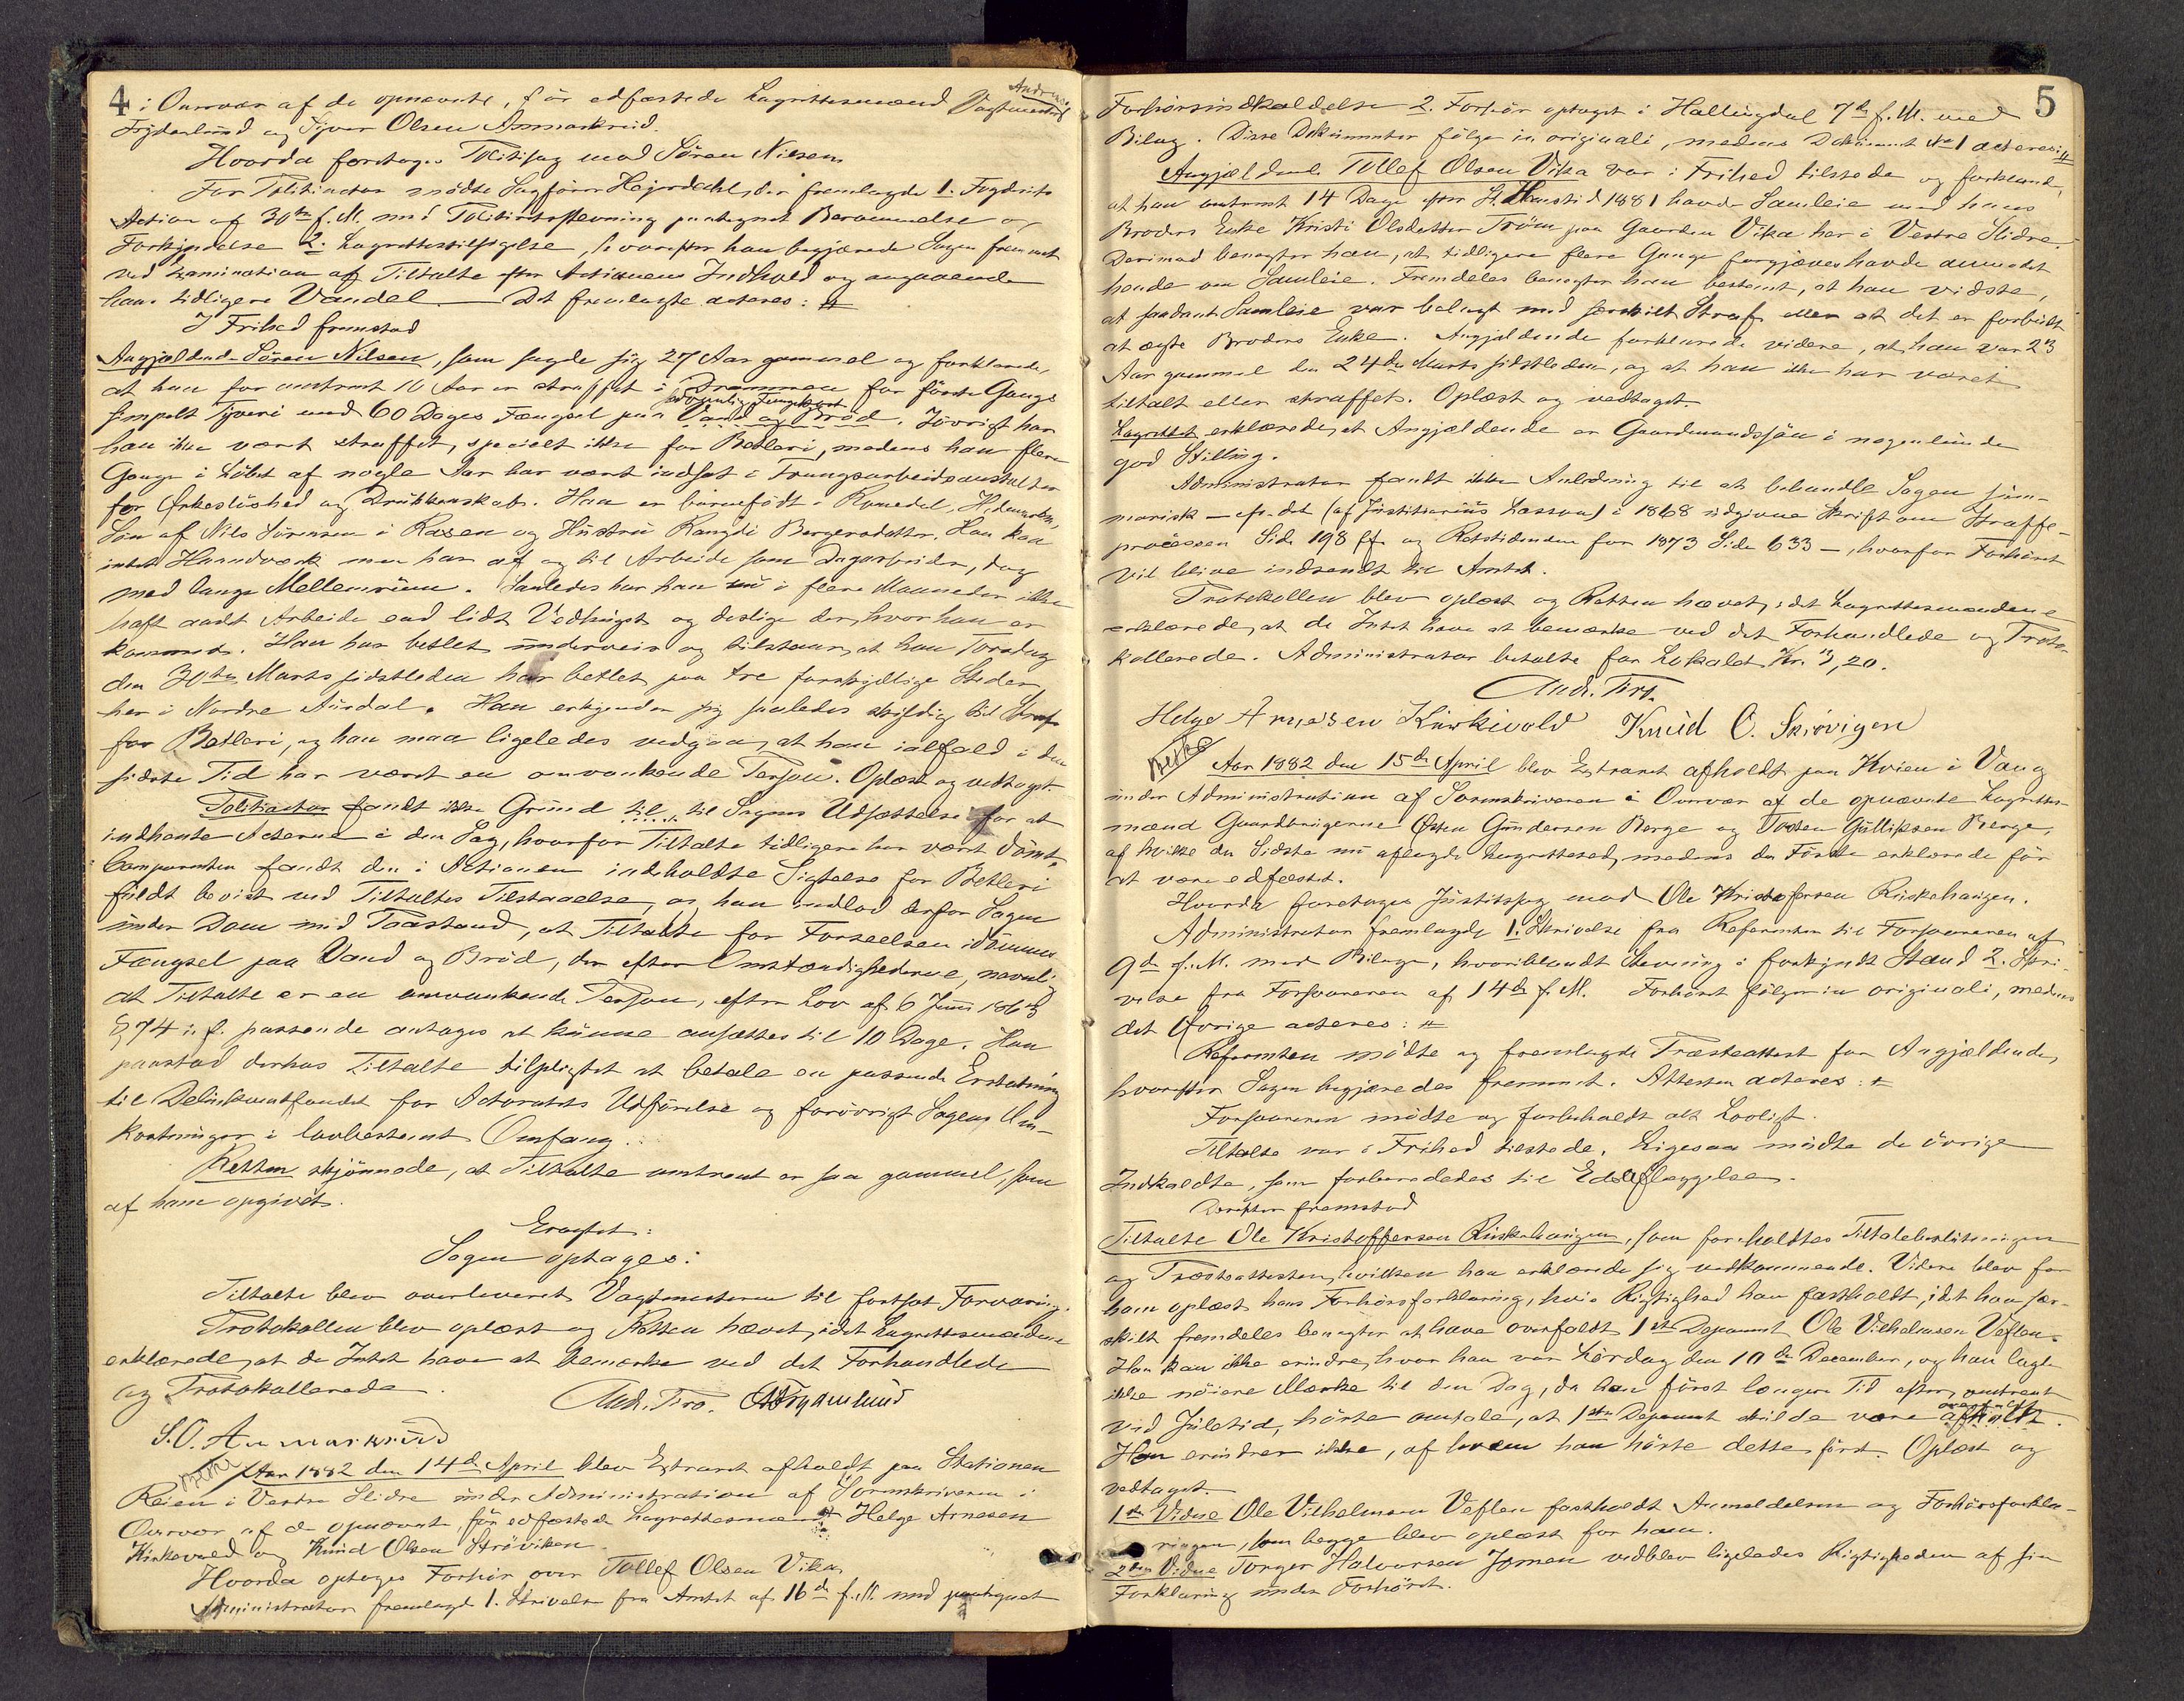 4
i Overvær af de opnævnte, før edfæstede Lagrettesmænd Vagtmester Andreas
Frydenlund og Syver Olsen Ammarkrud.
Hvorda foretoges Politisag mod Sören Nilsen
For Politiactor mödte Sagförer Hejerdahl, der fremlagde 1. Fogderiets
Action af 30te f. M. med Politiretsstevning paategnet Berammelse og
Forkyndelse 2. Lagrettestilsigelse, hvorefter han begjærede Sagen fremmet
ved Examination af Tiltalte efter Actionens Indhold og angaaende
hans tidligere Vandel. Det fremlagte acteres: #
I Frihed fremstod
Angjældende Sören Nilsen, som sagde sig 27 Aar gammel og forklarede,
at han for omtrent 10 Aar er straffet i Drammen for förste Gangs
simpelt Tyveri med 60 Dages Fængsel paa Vand og Bröd. Iövrigt har
sædvanlig Fangekost
han ikke været straffet, specielt ikke for Betleri, medens han flere
Gange i Löbet af nogle Aar har været indsat i Tvangsarbeidsanstalter
for Örkeslöshed og Drukkenskab. Han er barnefödt i Romedal, Hedemarken,
Sön af Nils Sörensen i Rasen og Hustru Rangdi Bergersdatter. Han kan
intet Haandværk men har af og til Arbeide som Dagarbeider, dog
med lange Mellemrum. Saaledes har han nu i flere Maaneder ikke
haft andt Arbeide end lidt Vedhugst og deslige der, hvor han er
kommet. Han har betlet underveis og tilstaar, at han Torsdag
den 30te Marts sidstleden har betlet paa tre forskjellige Steder
her i Nordre Aurdal. Han erkjender sig saaledes skyldig til Straf
for Betleri, og han maa ligeledes vedgaa, at han ialfald i den
sidste Tid har været en omvankende Person. Oplæst og vedtaget.
Politiactor fandt ikke Grund til til Sagens Udsættelse for at
indhente Acterne i den Sag, hvorfor Tiltalte tidligere har været dömt.
Comparenten fandt den i Actionen indeholdte Sigtelse for Betleri
fuldt bevist ved Tiltaltes Tilstaaelse, og han indlod derfor Sagen
under Dom med Paastand, at Tiltalte for Forseelsen idömmes
Fængsel paa Vand og Bröd, der efter Omstændighederne, navnlig
at Tiltalte er en omvankende Person, efter Lov af 6 Juni 1863
§ 74 i. f. passende antages at kunne ansættes til 10 Dage. Han
paastod derhos Tiltalte tilpligtet at betale en passende Erstatning
til Delinkventfondet for Actoratets Udförelse og forövrigt Sagens Om-
kostninger i lovbestemt Omfang.
Retten skjönnede, at Tiltalte omtrent er saa gammel, som
af ham opgivet.
Eragtet:
Sagen optages:
Tiltalte blev overleveret Vagtmesteren til fortsat Forvaring.
Protokollen blev oplæst og Retten hævet, idet Lagrettesmændene
erklærede, at de Intet have at bemærke ved det Forhandlede
og Protokollerede.
And. Firo. A Frydenlund
S. O. Ammarkrud
Aar 1882 den 14de April blev Extraret afholdt paa Stationen
Reien i Vestre Slidre under Administration af Sorenskriveren i
Overvær af de opnævnte, för edfæstede Lagrettesmænd Helge Arnesen
Kirkevold og Knud Olsen Ströviken
Hvorda optoges Forhör over Tollef Olsen Vika.
Administrator fremlagde 1. Skrivelse fra Amtet af 16de f. M. med paategnet
5
Forhörsindkaldelse 2. Forhör optaget i Hallingdal 7de f. M. med
Bilag. Disse Dokumenter fölge in originali, medens Dokument No 1 acteres: #
Angjældende Tollef Olsen Vika var i Frihed tilstede og forklarede,
at han omtrent 14 Dage för St. Hanstid 1881 havde Samleie med hans
Broders Enke Kristi Olsdatter Tröm paa Gaarden Vika her i Vestre Slidre.
Derimod benegter han, at tidligere flere Gange forgjæves havde anmodet
hende om Samleie. Fremdeles benegter han bestemt, at han vidste,
at saadant Samleie var belagt med særskilt Straf eller at det er forbudt
at ægte Broders Enke. Angjældende forklarede videre, at han var 23
Aar gammel den 24de Marts sidstleden, og at han ikke har været
tiltalt eller straffet. Oplæst og vedtaget.
Lagrettet erklærede, at Angjældende er Gaardmandssön i nogenlunde
god Stilling.
Administrator fandt ikke Anledning til at behandle Sagen sum-
marisk — cfr. det (af Justitiarius Lasson) i 1868 udgivne Skrift om Straffe-
processen Side 198 ff. og Retstidenden for 1873 Side 633 —, hvorfor Forhöret
vil blive indsendt til Amtet.
Protokollen blev oplæst og Retten hævet, idet Lagrettesmændene
erklærede, at de Intet have at bemærke ved det Forhandlede og Proto-
kollerede. Administrator betalte for Lokalet Kr. 3,20.
And. Firo.
Helge Arnesen Kirkevold Knud O. Skrövigen
Aar 1882 den 15de April blev Extraret afholdt paa Kvien i Vang
under Administration af Sorenskriveren i Overvær af de opnævnte Lagrettes-
mænd Gaardbrugerne Östen Gundersen Berge og Torsten Gulliksen Berge,
af hvilke den Sidste nu aflagde Lagretteseed, medens den Förste erklærede för
at være edfæstet.
Hvorda foretoges Justitssag mod Ole Kristoffersen Ruskehaugen.
Administrator fremlagde 1. Skrivelse fra Referenten til Forsvareren af
9de f. M. med Bilage, hvoriblandt Stevning i forkyndt Stand 2. Skri-
velse fra Forsvareren af 14de f. M. Forhöret fölger in originali, medens
det Övrige acteres: #
Referenten mödte og fremlagde Præsteattest for Angjældende,
hvorefter Sagen begjæredes fremmet. Attesten acteres: #
Forsvareren mödte og forbeholdt alt Lovligt.
Tiltalte var i Frihed tilstede. Ligesaa mödte de övrige
Indkaldte, som forberededes til Edsaflæggelse.
Derefter fremstod
Tiltalte Ole Kristoffersen Ruskehaugen, som foreholdtes Tiltalebeslutningen
og Præsteattesten, hvilken han erklærede sig vedkommende. Videre blev for
ham oplæst hans Forhörsforklaring, hvis Rigtighed han fastholdt, idet han sær-
skilt fremdeles benegter at have overfaldt 1ste Deponent Ole Vilhelmsen Veflen.
Han kan ikke erindre, hvor han var Lördag den 10de December, og han lagde
ikke nöiere Mærke til den Dag, da han först længere Tid efter, omtrent
ved Juletid, hörte omtale, at 1ste Deponent skulde være overfaldt.
Han erindrer ikke, af hvem han hörte dette först. Oplæst og
vedtaget.
1ste Vidne Ole Vilhelmsen Veflen fastholdt Anmeldelsen og Forhörsforkla-
ringen, som begge blev oplæst for ham.
2det Vidne Torger Halvorsen Jomen vedblev ligeledes Rigtigheden af sin
Forklaring under Forhöret.